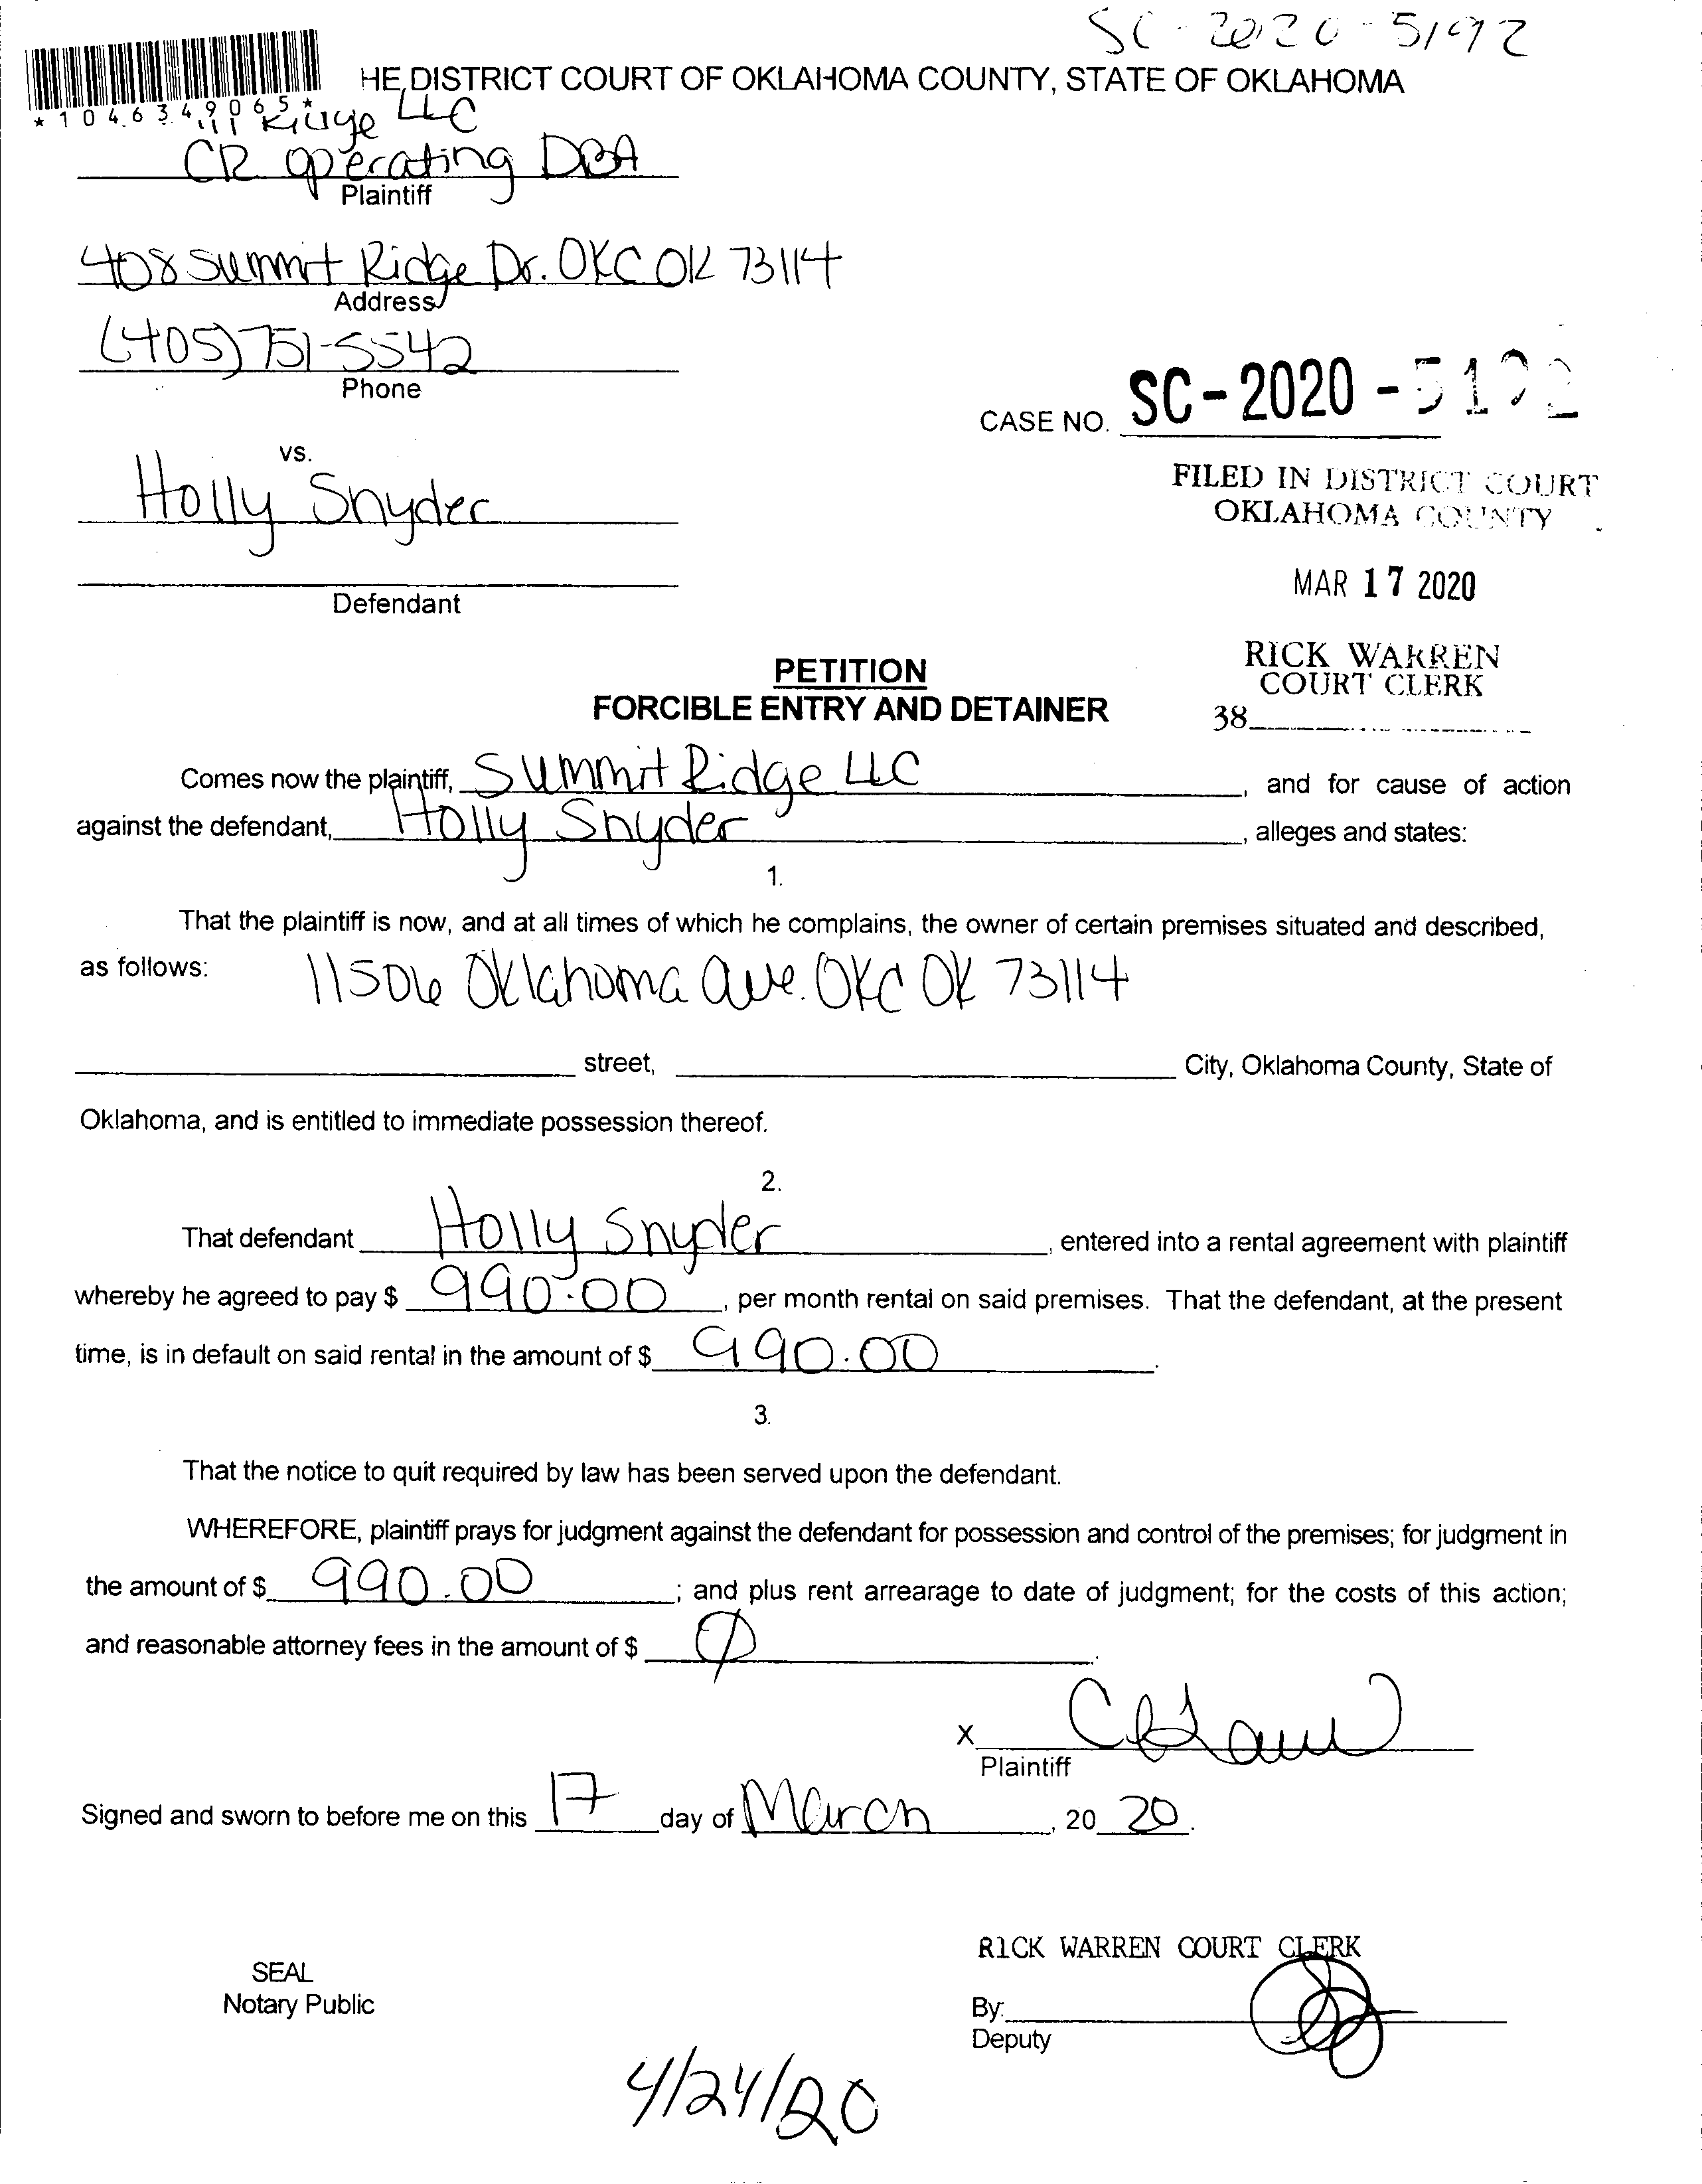 SC-2020-5192
HE DISTRICT COURT OF OKLAHOMA COUNTY, STATE OF OKLAHOMA
*1046349065*
LLC
CR Operating DBA
Plaintiff
408 Summit Ridge Dr. OKC OK 73114
Address
(405) 751-5542
Phone
CASE NO. SC-2020-5192
vs.
Holly Snyder
FILED IN DISTRICT COURT
OKLAHOMA COUNTY
MAR 17 2020
Defendant
RICK WARREN
COURT CLERK
38
PETITION
FORCIBLE ENTRY AND DETAINER
Comes now the plaintiff, Summit Ridge LLC, and for cause of action
against the defendant, Holly Snyder, alleges and states:
1.
That the plaintiff is now, and at all times of which he complains, the owner of certain premises situated and described,
as follows: 11506 Oklahoma Ave. OKC OK 73114
street, City, Oklahoma County, State of
Oklahoma, and is entitled to immediate possession thereof.
2.
That defendant Holly Snyder, entered into a rental agreement with plaintiff
whereby he agreed to pay $ 990.00, per month rental on said premises. That the defendant, at the present
time, is in default on said rental in the amount of $ 990.00.
3.
That the notice to quit required by law has been served upon the defendant.
WHEREFORE, plaintiff prays for judgment against the defendant for possession and control of the premises; for judgment in
the amount of $ 990.00; and plus rent arrearage to date of judgment; for the costs of this action;
and reasonable attorney fees in the amount of $ Ø.
X
Plaintiff
Signed and sworn to before me on this 17 day of March, 20 20.
RICK WARREN COURT CLERK
SEAL
Notary Public
By:
Deputy
4/24/20